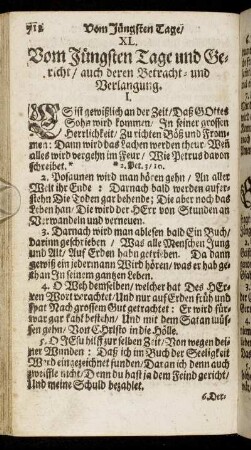 718 Vom Jüngsten Tage/
XL.
Vom Jüngsten Tage und Ge-
richt/ auch deren Betracht- und
Verlangung.
I.
ES ist gewißlich an der Zeit/ Daß GOttes
Sohn wird kommen/ In seiner grossen
Herrlichkeit/ Zu richten Böß und From-
men: Dann wird das Lachen werden theur/ Weñ
alles wird vergehn im Feur/ Wie Petrus davon
schreibet.* * 2. Pet. 3/10.
2. Posaunen wird man hören gehn/ An aller
Welt ihr Ende: Darnach bald werden aufer-
stehn Die Todten gar behende; Die aber noch das
Leben han/ Die wird der HErr von Stunden an
Verwandeln und verneuen.
3. Darnach wird man ablesen bald Ein Buch/
Darinn geschrieben/ Was alle Menschen Jung
und Alt/ Auf Erden habn getrieben. Da dann
gewiß ein jedermann Wird hören/ was er hab ge-
than In seinm gantzen Leben.
4. O Weh demselben/ welcher hat Des HEr-
ren Wort verachtet/ Und nur auf Erden früh und
spat Nach grossem Gut getrachtet: Er wird für-
war gar kahl bestehn/ Und mit dem Satan müs-
sen gehn/ Von Christo in die Hölle.
5. O JEsu hilff zur selben Zeit/ Von wegen dei-
ner Wunden: Daß ich im Buch der Seeligkeit
Werd eingezeichnet funden/ Daran ich denn auch
zweiffle nicht/ Denn du hast ja dem Feind gericht/
Und meine Schuld bezahlet.
6. Der-